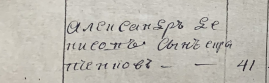 Александръ Де
нисовъ Сынъ Сера
пенковъ — — 41